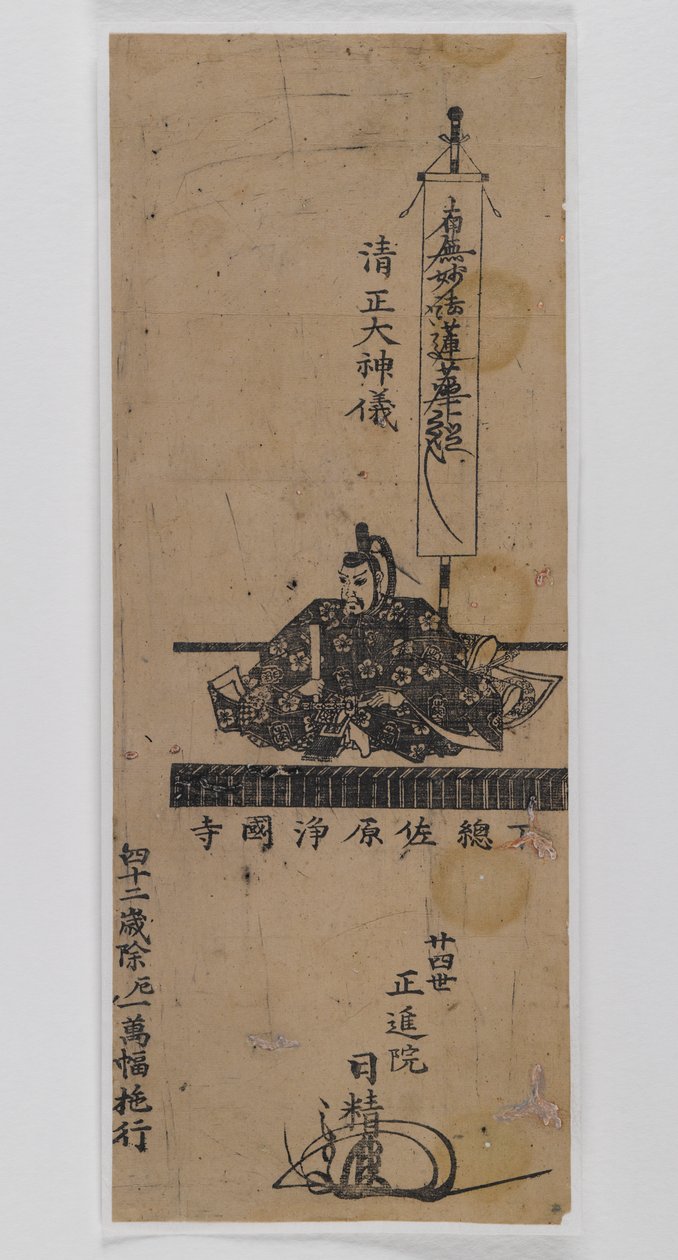 南無妙法蓮華経
清正大神儀
下總佐原浄國寺
廿四世
正進院
日精
四十二歳除厄一萬幅拖行